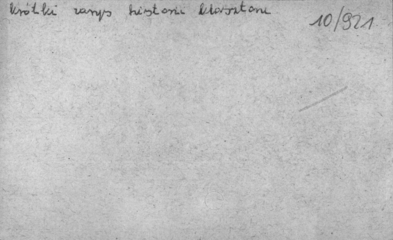 krótki zarys historii klasztoru
10/921